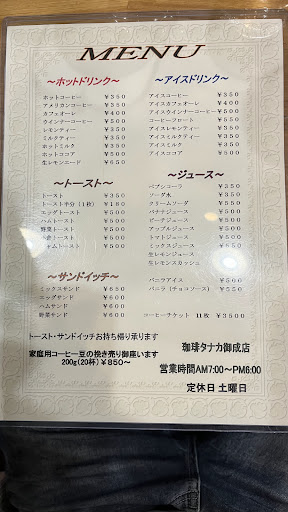 MENU
～ホットドリンク～
ホットコーヒー ￥350
アメリカンコーヒー ￥350
カフェオーレ ￥400
ウインナーコーヒー ￥500
レモンティー ￥350
ミルクティー ￥350
ホットミルク ￥350
ホットココア ￥500
生レモンエード ￥650
～トースト～
トースト ￥350
トースト半分(1枚) ￥180
エッグトースト
ハムトースト
野菜トースト
小倉トースト
ジャムトースト
～サンドイッチ～
ミックスサンド
エッグサンド
ハムサンド
野菜サンド
～アイスドリンク～
アイスコーヒー ￥350
アイスカフェオーレ ￥400
アイスウインナーコーヒー ￥500
コーヒーフロート ￥550
アイスレモンティー ￥350
アイスミルクティー ￥350
アイスミルク ￥350
アイスココア ￥500
～ジュース～
ペプシコーラ ￥350
ソーダ水 ￥350
クリームソーダ ￥550
バナナジュース
ピーチジュース
アップルジュース
トマトジュース
ミックスジュース
生レモンジュース
生レモンスカッシュ
バニラアイス ￥500
バニラ(チョコソース) ￥550
コーヒーチケット 11枚 ￥3500
トースト・サンドイッチお持ち帰り承ります
家庭用コーヒー豆の挽き売り御座います
200g(20杯)￥850～
珈琲タナカ御成店
営業時間AM7:00～PM6:00
定休日 土曜日